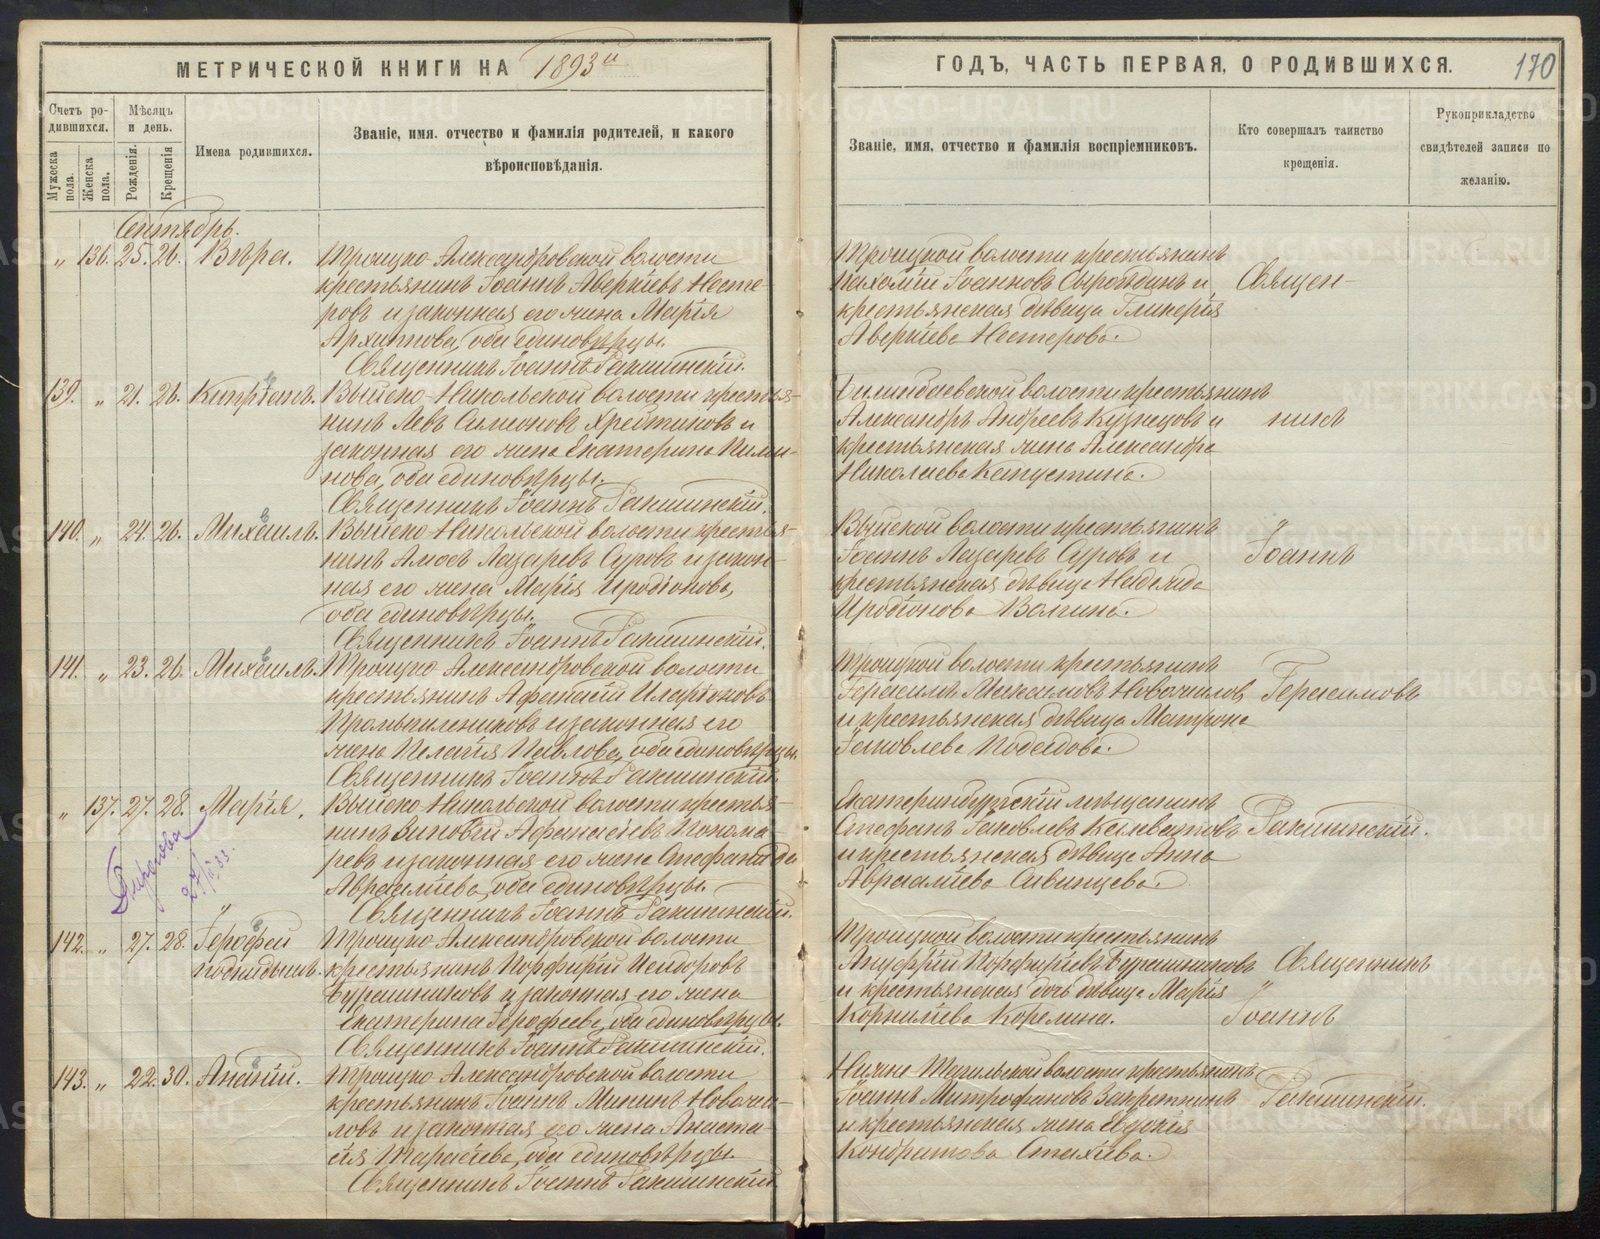 МЕТРИЧЕСКОЙ КНИГИ НА 1893й
ГОДЪ, ЧАСТЬ ПЕРВАЯ, О РОДИВШИХСЯ.
170
Счетъ ро-
дившихся.
Мужеска пола.
Женска пола.
Мѣсяцъ
и день.
Рожденія.
Крещенія
Имена родившихся.
Званіе, имя. отчество и фамилія родителей, и какого
вѣроисповѣданія.
Званіе, имя, отчество и фамилія воспріемниковъ.
Кто совершалъ таинство
крещенія.
Рукоприкладство
свидѣтелей записи по
желанію.
Сентябрь.
„ 136. 25. 26. Вѣра.
Троицко Александровской волости
крестьянинъ Іоаннъ Аверкіевъ Несте-
ровъ и законная его жена Марія
Архипова, оба единовѣрцы.
Священникъ Іоаннъ Ракшинскій.
Троицкой волости крестьянинъ
Пахомій Іоанновъ Сыроѣдинъ и
крестьянская дѣвица Гликерія
Аверкіева Нестерова.
Священ-
139. „ 21. 26. Кипріанъ.
Выйско-Никольской волости крестья-
нинъ Левъ Симоновъ Хрестиновъ и
законная его жена Екатерина Пиме-
нова, оба единовѣрцы.
Священникъ Іоаннъ Ракшинскій.
Билимбаевской волости крестьянинъ
Александръ Андреевъ Кузнецовъ и
крестьянская жена Александра
Николаева Капустина.
никъ
140. „ 24. 26. Михаилъ.
Выйско-Никольской волости крестья-
нинъ Амосъ Лазаревъ Суровъ и закон-
ная его жена Марія Иродіонова,
оба единовѣрцы.
Священникъ Іоаннъ Ракшинскій.
Выйской волости крестьянинъ
Іоаннъ Лазаревъ Суровъ и
крестьянская дѣвица Надежда
Иродіонова Волгина.
Іоаннъ
141. „ 23. 26. Михаилъ.
Троицко Александровской волости
крестьянинъ Афанасій Иларіоновъ
Промышленниковъ и законная его
жена Пелагія Павлова, оба единовѣрцы
Священникъ Іоаннъ Ракшинскій
Троицкой волости крестьянинъ
Герасимъ Максимовъ Новожиловъ
и крестьянская дѣвица Матрона
Іаковлева Посѣдова.
Герасимовъ
„ 137. 27. 28. Марія.
Выйско-Никольской волости крестья-
нинъ Зиновій Афанасіевъ Понома-
ревъ и законная его жена Стефанида
Авраамиева, оба единовѣрцы.
Священникъ Іоаннъ Ракшинскій.
Екатеринбургскій мѣщанинъ
Стефанъ Іаковлевъ Калеватовъ
и крестьянская дѣвица Анна
Авраамиева Савинцева.
Ракшинскій.
142. „ 27. 28. Іерофей
Троицко Александровской волости
крестьянинъ Порфирій Исидоровъ
Бурашниковъ и законная его жена
Екатерина Іерофеева, оба единовѣрцы.
Священникъ Іоаннъ Ракшинскій.
Троицкой волости крестьянинъ
Ануфрій Порфиріевъ Бурашниковъ
и крестьянская дочь дѣвица Марія
Корниліева Корелина.
Священникъ
„
Іоаннъ
143. „ 22. 30. Ананій.
Троицко Александровской волости
крестьянинъ Іоаннъ Мининъ Новожи-
ловъ и законная его жена Анаста-
сія Тарасіева, оба единовѣрцы.
Священникъ Іоаннъ Ракшинскій
Нижне Тагильской волости крестьянинъ
Іоаннъ Митрофановъ Закрѣткинъ
и крестьянская жена Евдокія
Кондратова Стахіева.
Ракшинскій.
METRIKI.GASO-URAL.RU